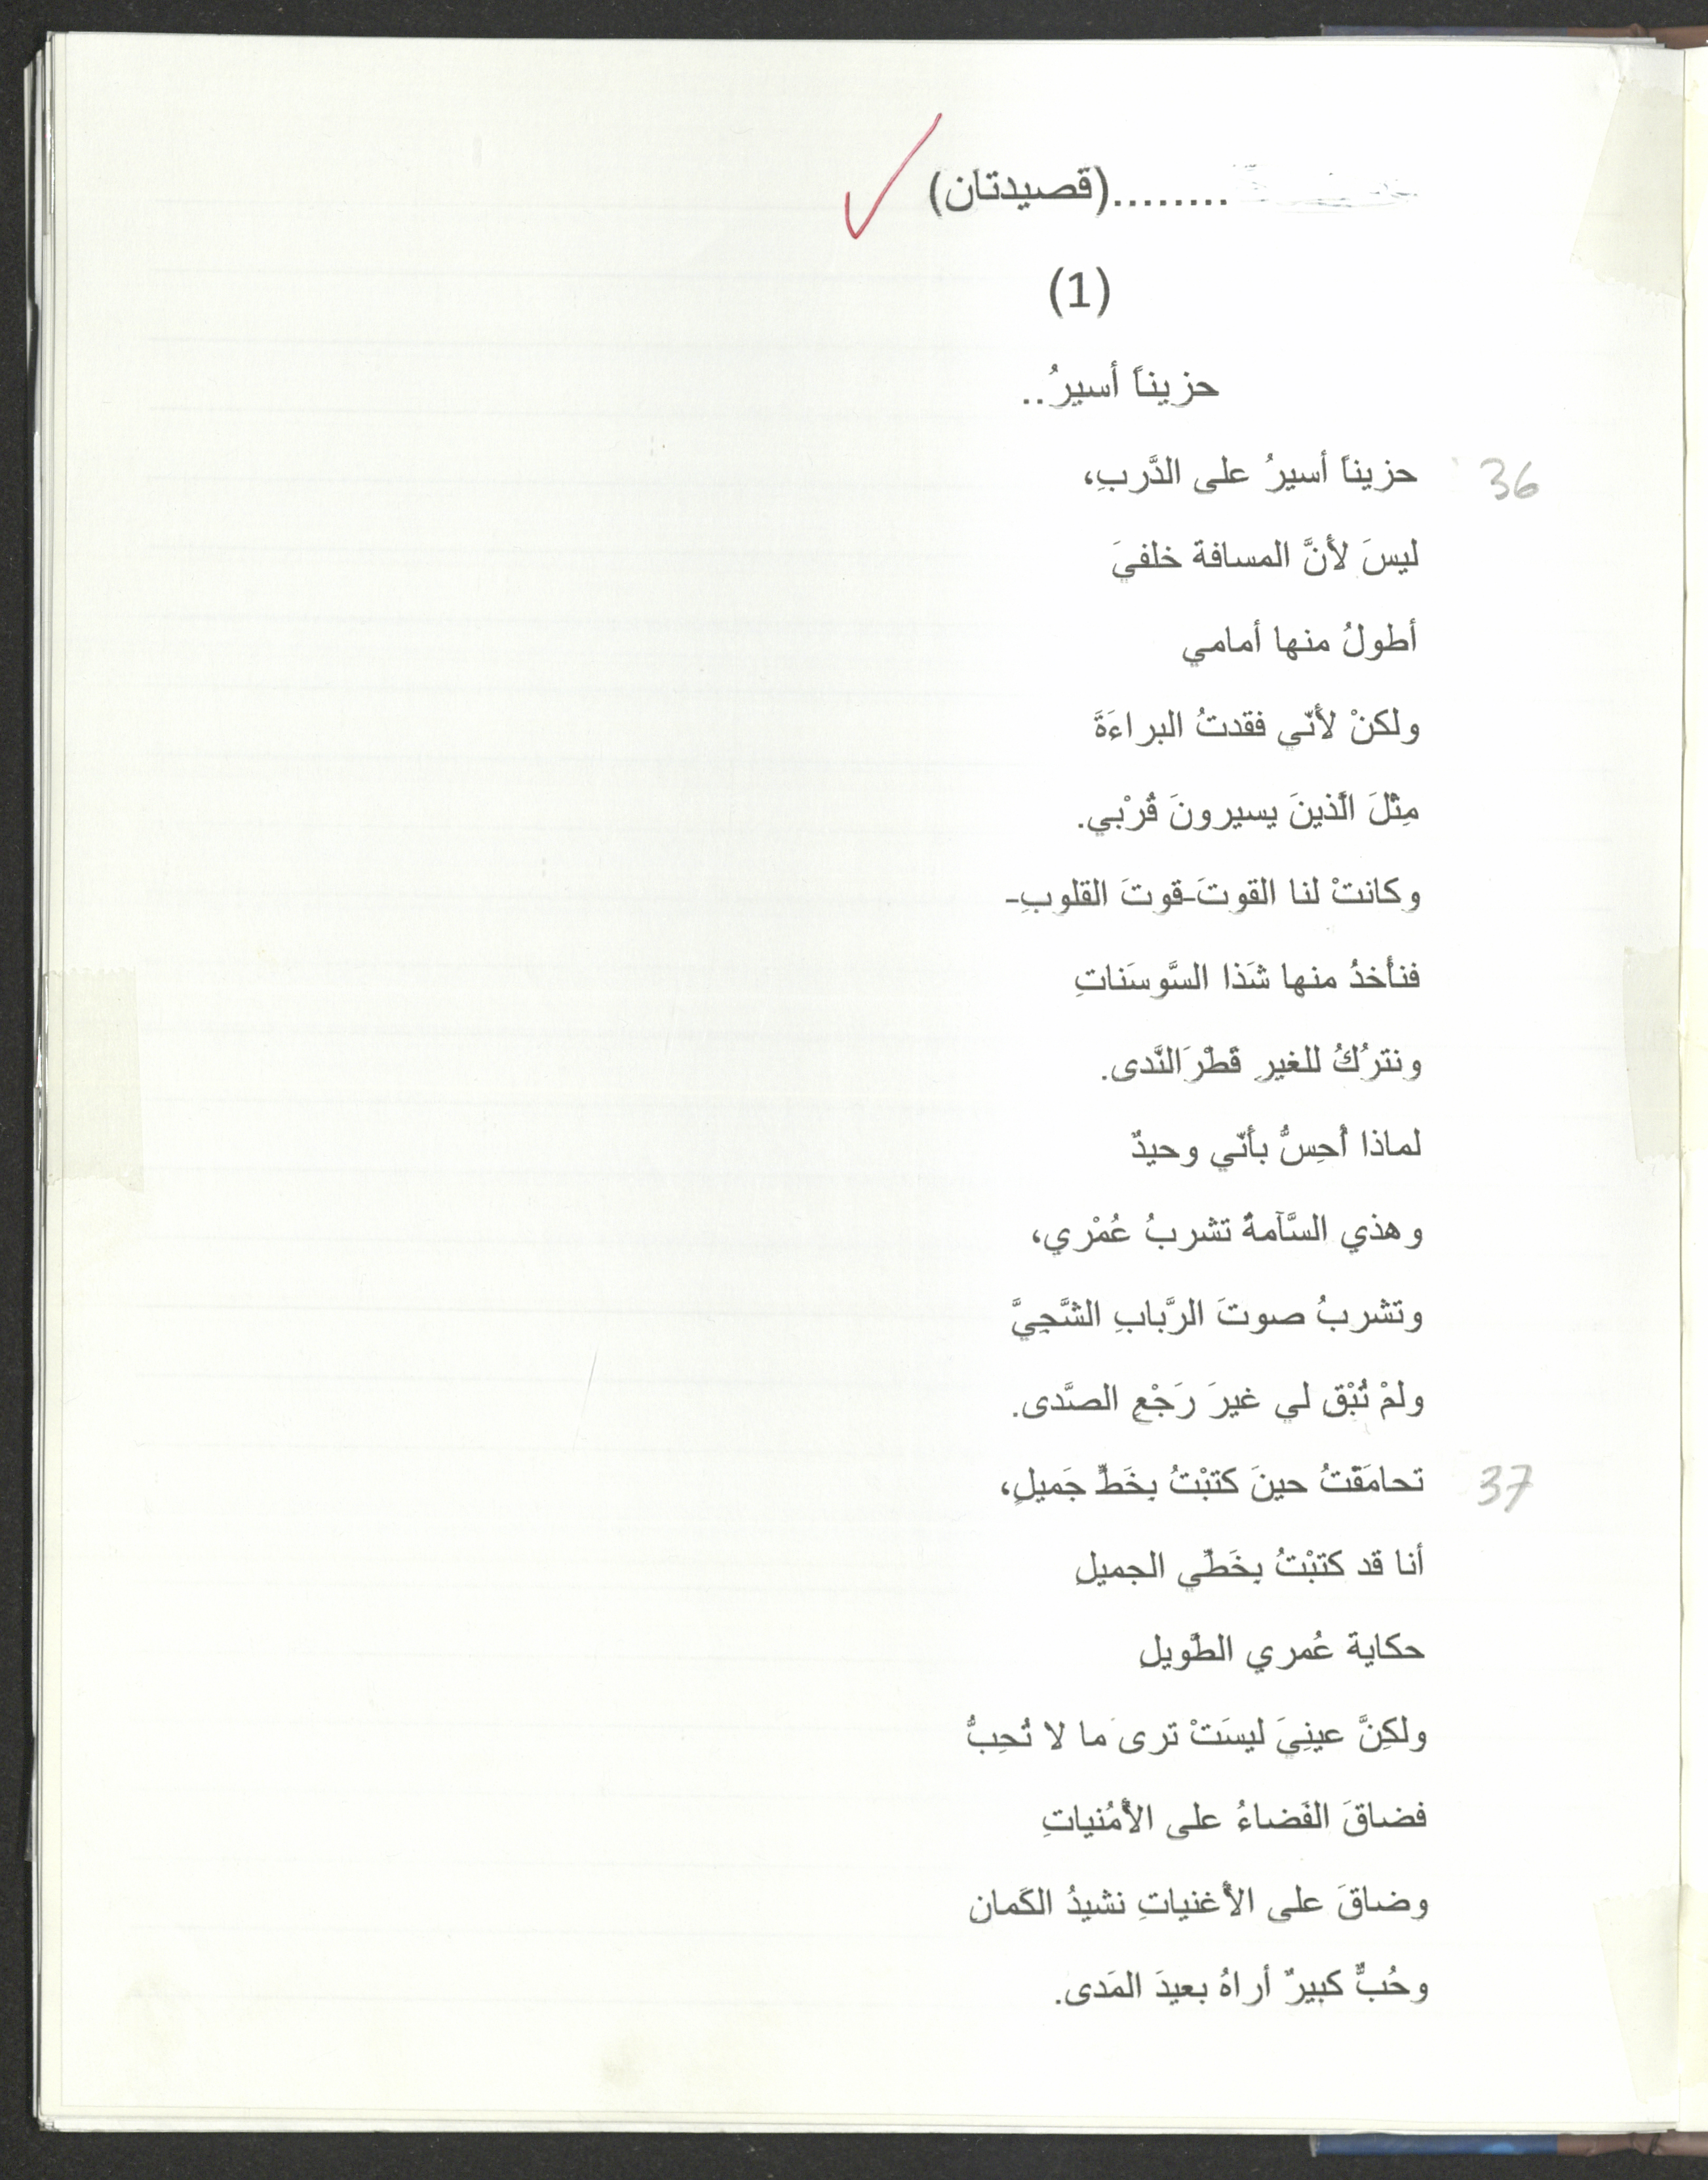 ........(قصيدتان)
(1)
حزيناً أسيرُ..
36 حزيناً أسيرُ على الدَّربِ،
ليسَ لأنَّ المسافة خلفيَ
أطولُ منها أمامي
ولكنْ لأنّي فقدتُ البراءَةَ
مِثْلَ الَّذينَ يسيرونَ قُرْبي.
وكانتْ لنا القوتَ-قوتَ القلوبِ-
فنأخذُ منها شَذا السَّوسَناتِ
ونترُكُ للغيرِ قَطْرَ النَّدى.
لماذا أُحِسُّ بأنّي وحيدٌ
وهذي السَّآمةُ تشربُ عُمْري،
وتشربُ صوتَ الرَّبابِ الشَّجِيَّ
ولمْ تُبْقِ لي غيرَ رَجْعِ الصَّدى.
37 تحامَقْتُ حينَ كتبْتُ بِخَطٍّ جَميلٍ،
أنا قد كتبْتُ بِخَطِّي الجميلِ
حكاية عُمري الطَّويلِ
ولكِنَّ عينِيَ ليسَتْ ترى ما لا تُحِبُّ
فضاقَ الفَضاءُ على الأُمْنياتِ
وضاقَ على الأُغنياتِ نشيدُ الكَمانِ
وحُبٌّ كبيرٌ أراهُ بعيدَ المَدى.